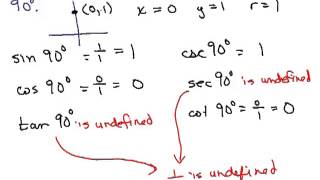 90°. (0,1) x=0 y=1 r=1
sin 90° = 1/1 = 1 csc 90° = 1
cos 90° = 0/1 = 0 sec 90° is undefined
tan 90° is undefined cot 90° = 0/1 = 0
is undefined